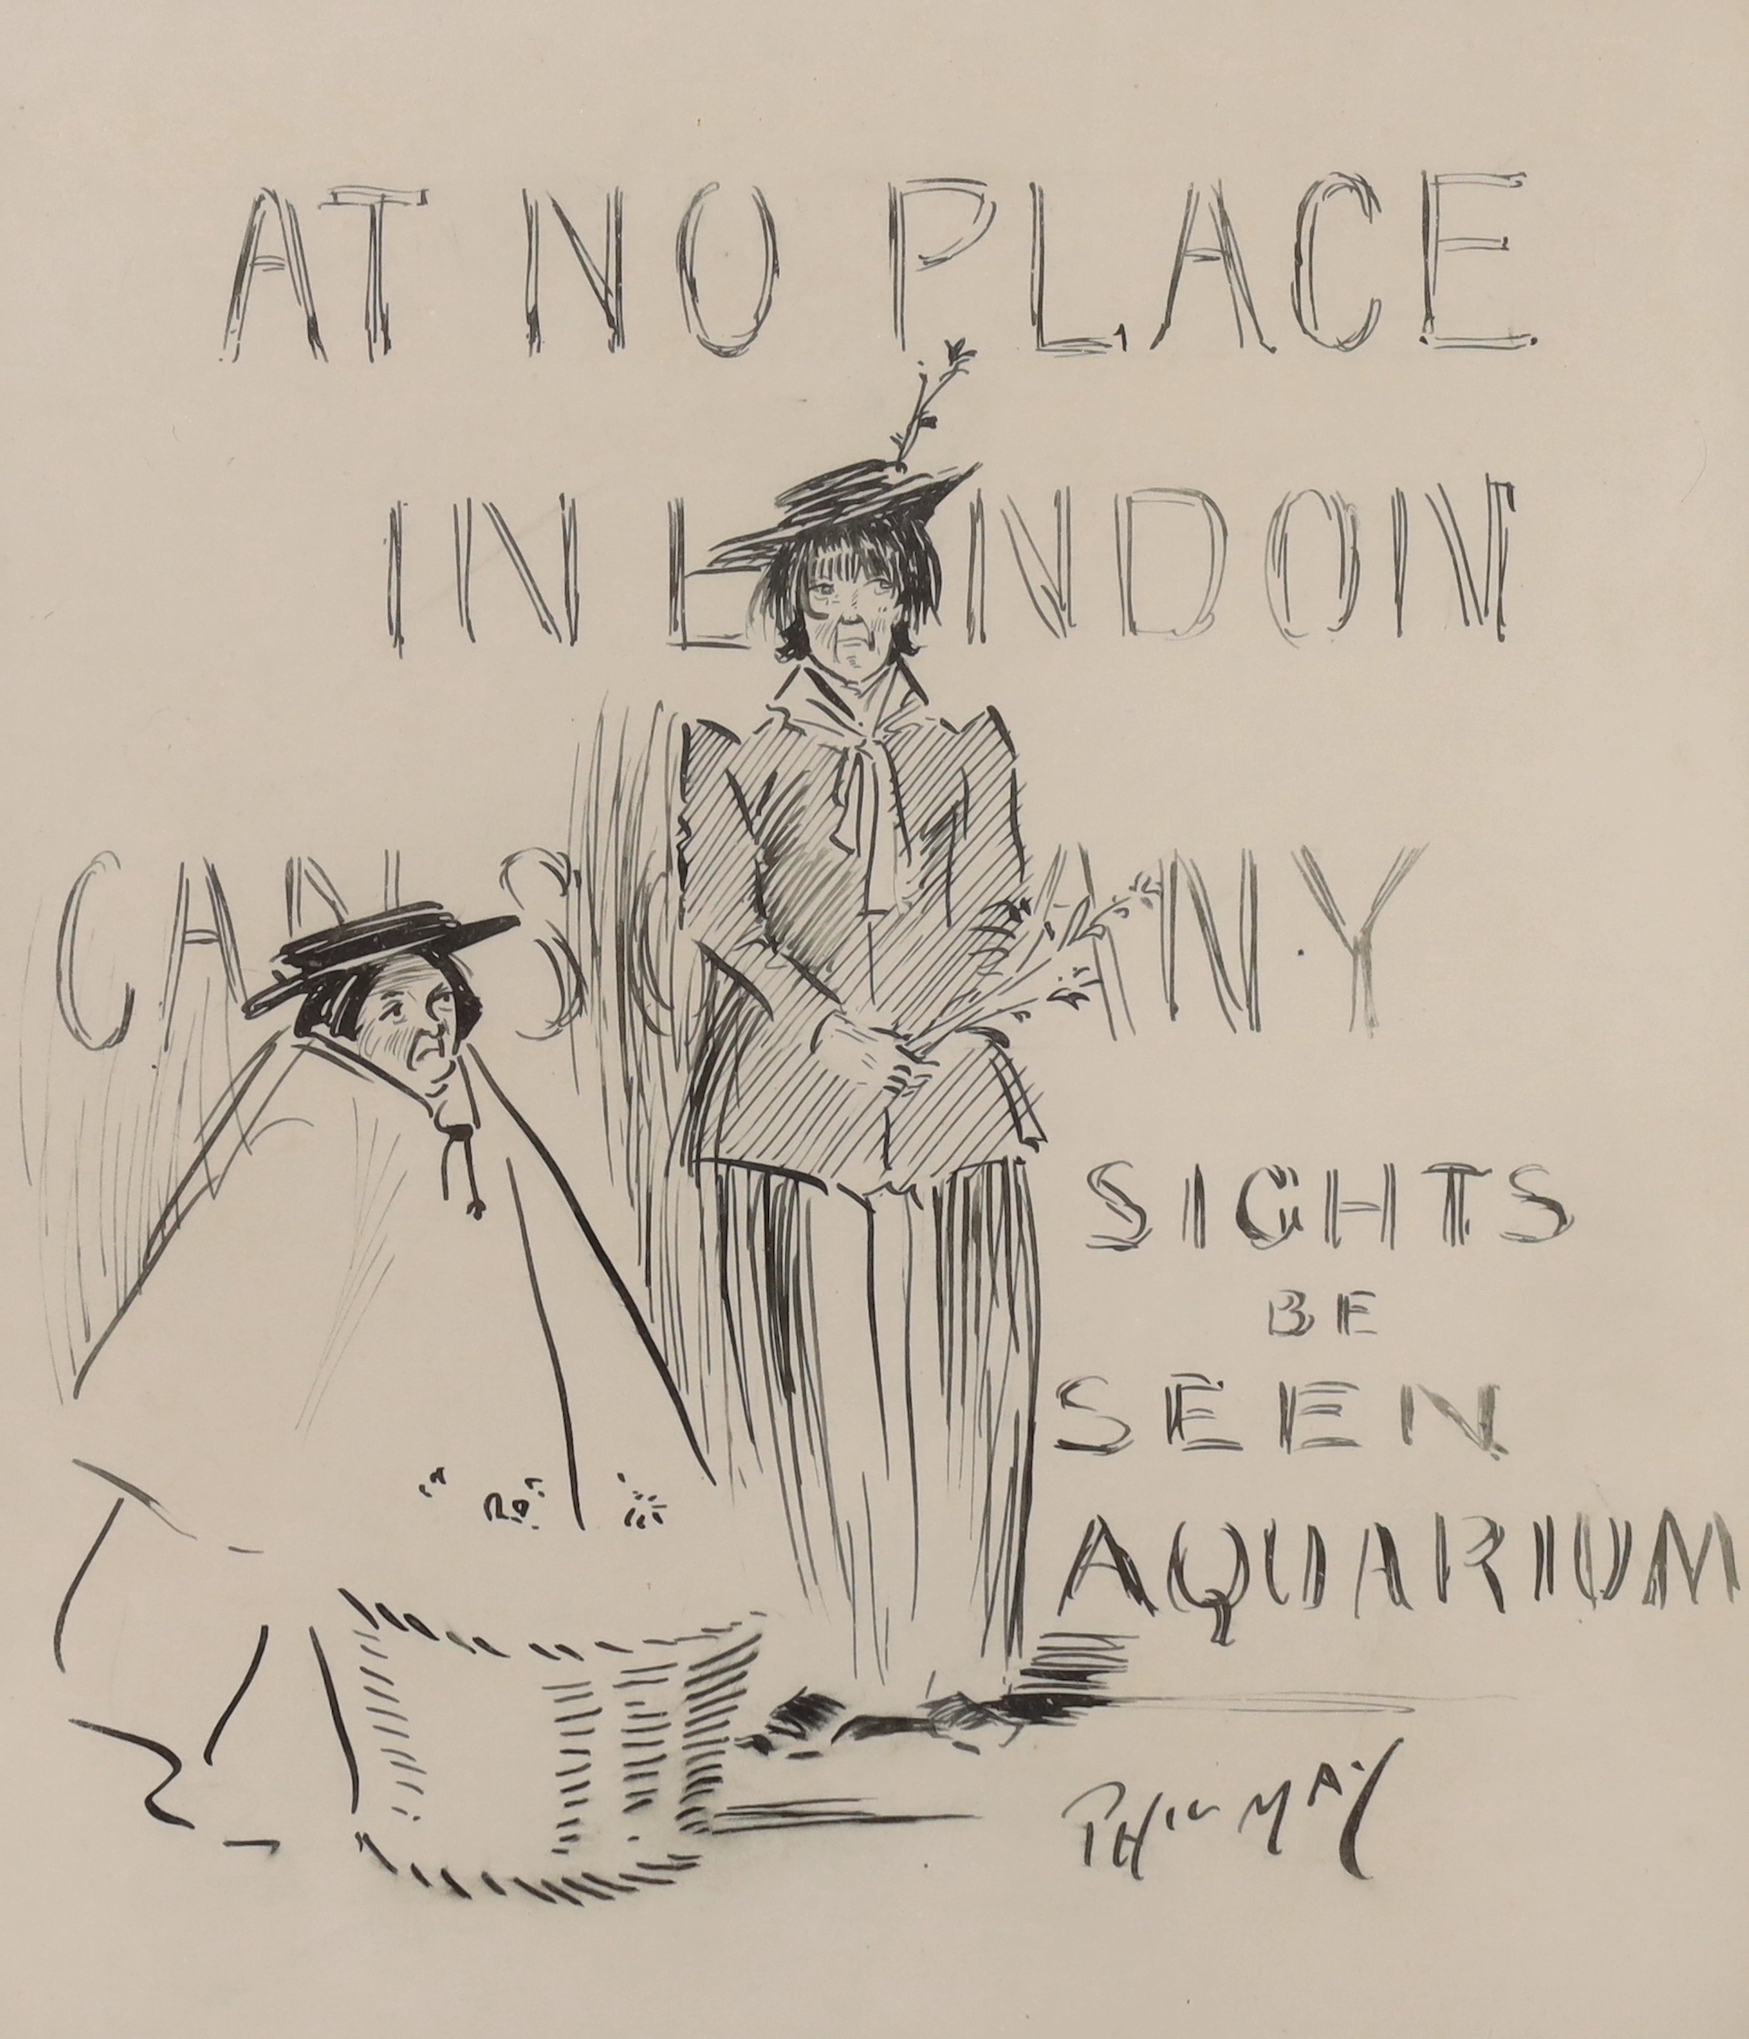 AT NO PLACE
IN LONDON
CAN ANY
SIGHTS
BE
SEEN
AQUARIUM
PHIL MAY